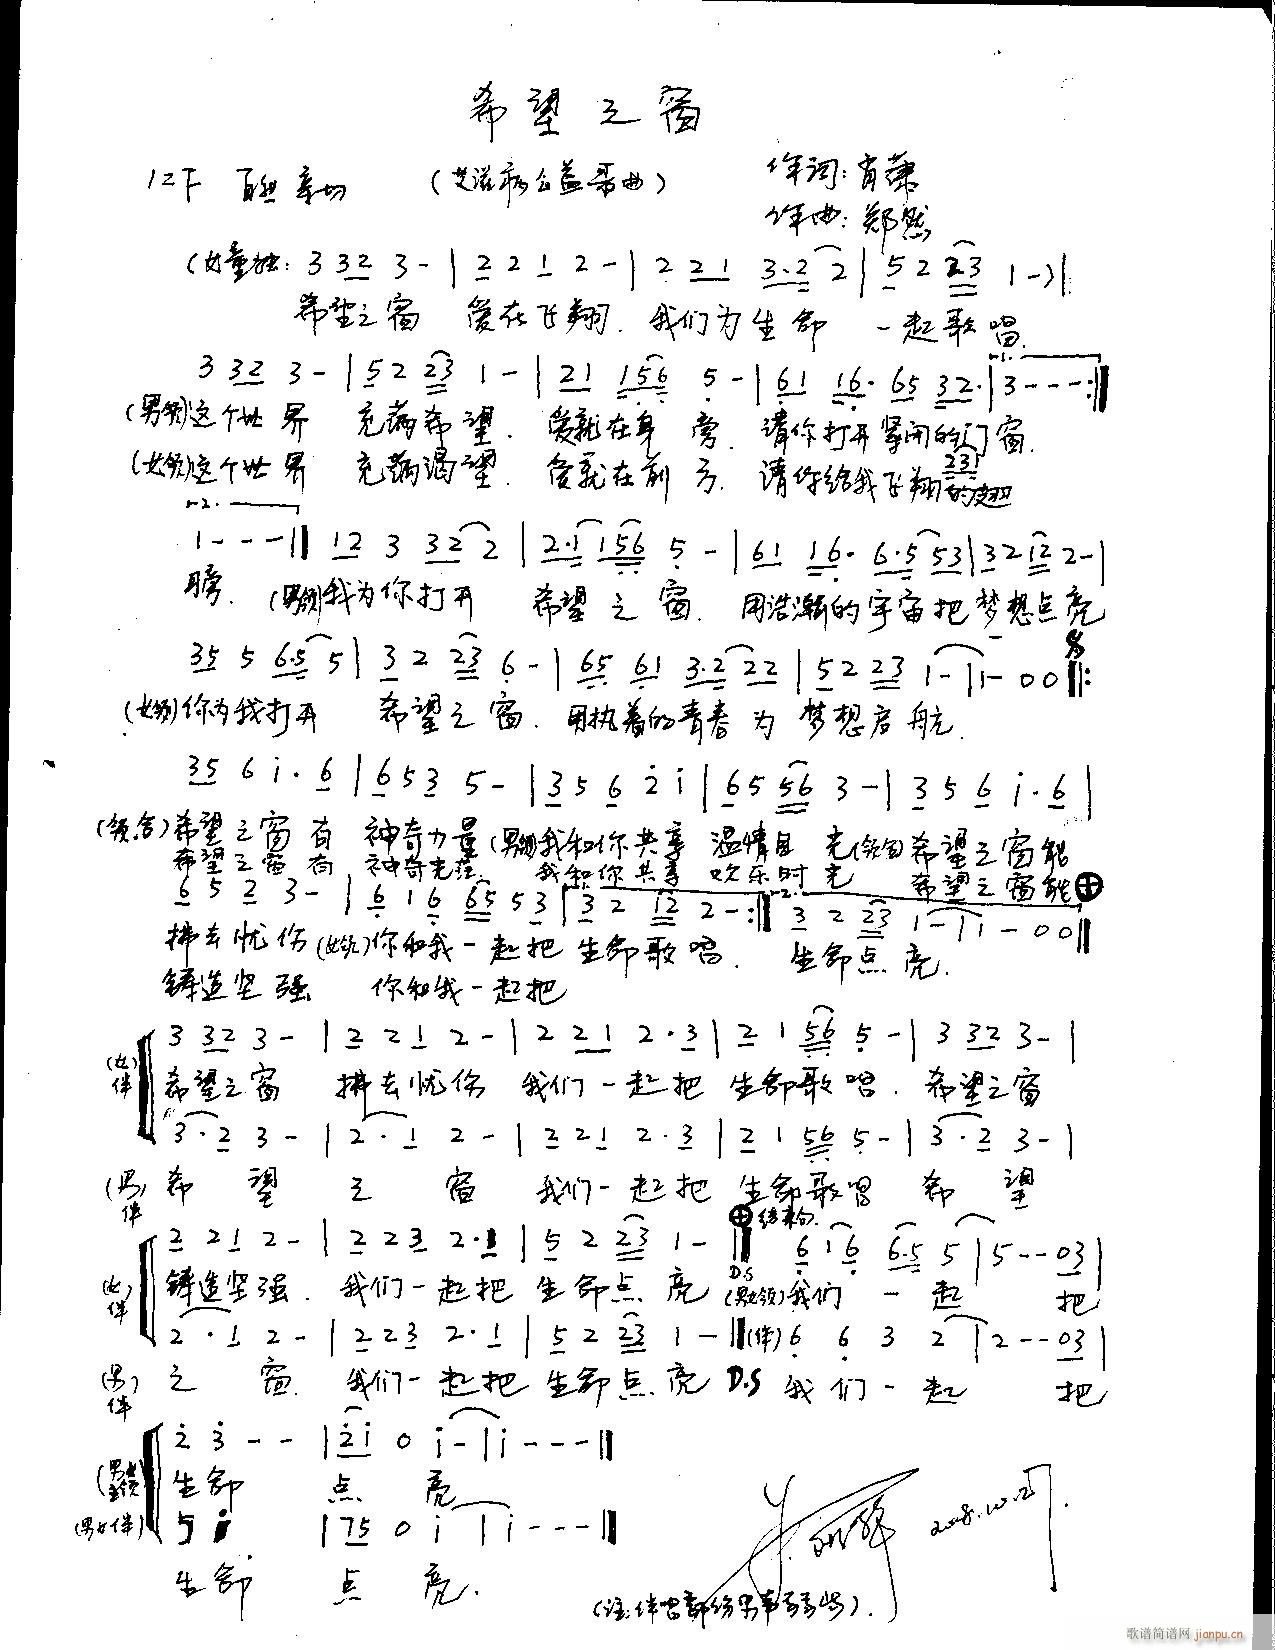 希望之窗
1=F
(艾滋病公益歌曲)
作词:肖萧
作曲:郑然
(女童独: 3 32 3 - | 2 2 1 2 - | 2 21 3·2 2 | 5 2 23 1 -) |
希望之窗 爱在飞翔. 我们为生命 一起歌唱.
3 32 3 - | 5 2 23 1 - | 21 156 5 - | 61 16· 65 32· | 3 - - - :||
(男领)这个世界 充满希望. 爱就在身旁. 请你打开紧闭的门窗.
231
(女领)这个世界 充满渴望. 爱就在前方. 请你给我飞翔的翅
1 - - - || 12 3 32 2 | 2·1 156 5 - | 61 16· 6·5 53 | 32 12 2 - |
膀. (男领)我为你打开 希望之窗. 用浩瀚的宇宙把梦想点亮
35 5 6·5 5 | 3 2 23 6 - | 65 61 3·2 22 | 52 23 1 - | 1 - 0 0 ||:
(女领)你为我打开 希望之窗. 用执着的青春为梦想启航.
35 6 i· 6 | 6 5 3 5 - | 35 6 2 i | 65 56 3 - | 35 6 i· 6 |
(领合)希望之窗有 神奇力量 (男领)我和你共享 温情目光 希望之窗能
希望之窗有 神奇光芒. 我和你共享 欢乐时光 希望之窗能
6 5 2 3 - | 6 1 6 65 53 | 3 2 12 2 - :|| 3 2 23 1 - | 1 - 0 0 ||
拂去忧伤 (女领)你和我一起把 生命歌唱. 生命点亮.
铸造坚强 你和我一起把
3 32 3 - | 2 2 1 2 - | 2 21 2·3 | 2 1 56 5 - | 3 32 3 - |
(女伴) 希望之窗 拂去忧伤 我们一起把 生命歌唱. 希望之窗
3·2 3 - | 2·1 2 - | 2 21 2·3 | 2 1 56 5 - | 3·2 3 - |
(男伴) 希望 之窗 我们一起把 生命歌唱 希望
结束句.
2 2 1 2 - | 2 2 3 2·1 | 5 2 23 1 - || 6 1 6 6·5 5 | 5 - - 03 |
(女伴) 铸造坚强. 我们一起把 生命点亮 D.S (男女领)我们一起 把
2·1 2 - | 2 2 3 2·1 | 5 2 23 1 - || (伴) 6 6 3 2 | 2 - - 03 |
(男伴) 之窗. 我们一起把 生命点亮 D.S 我们一起 把
2 3 - - | 2i 0 i - | i - - - ||
生命 点亮
(男女伴) 5 i | 75 0 i | i - - - ||
生命 点亮.
2008.10.27.
歌谱简谱网 jianpu.cn